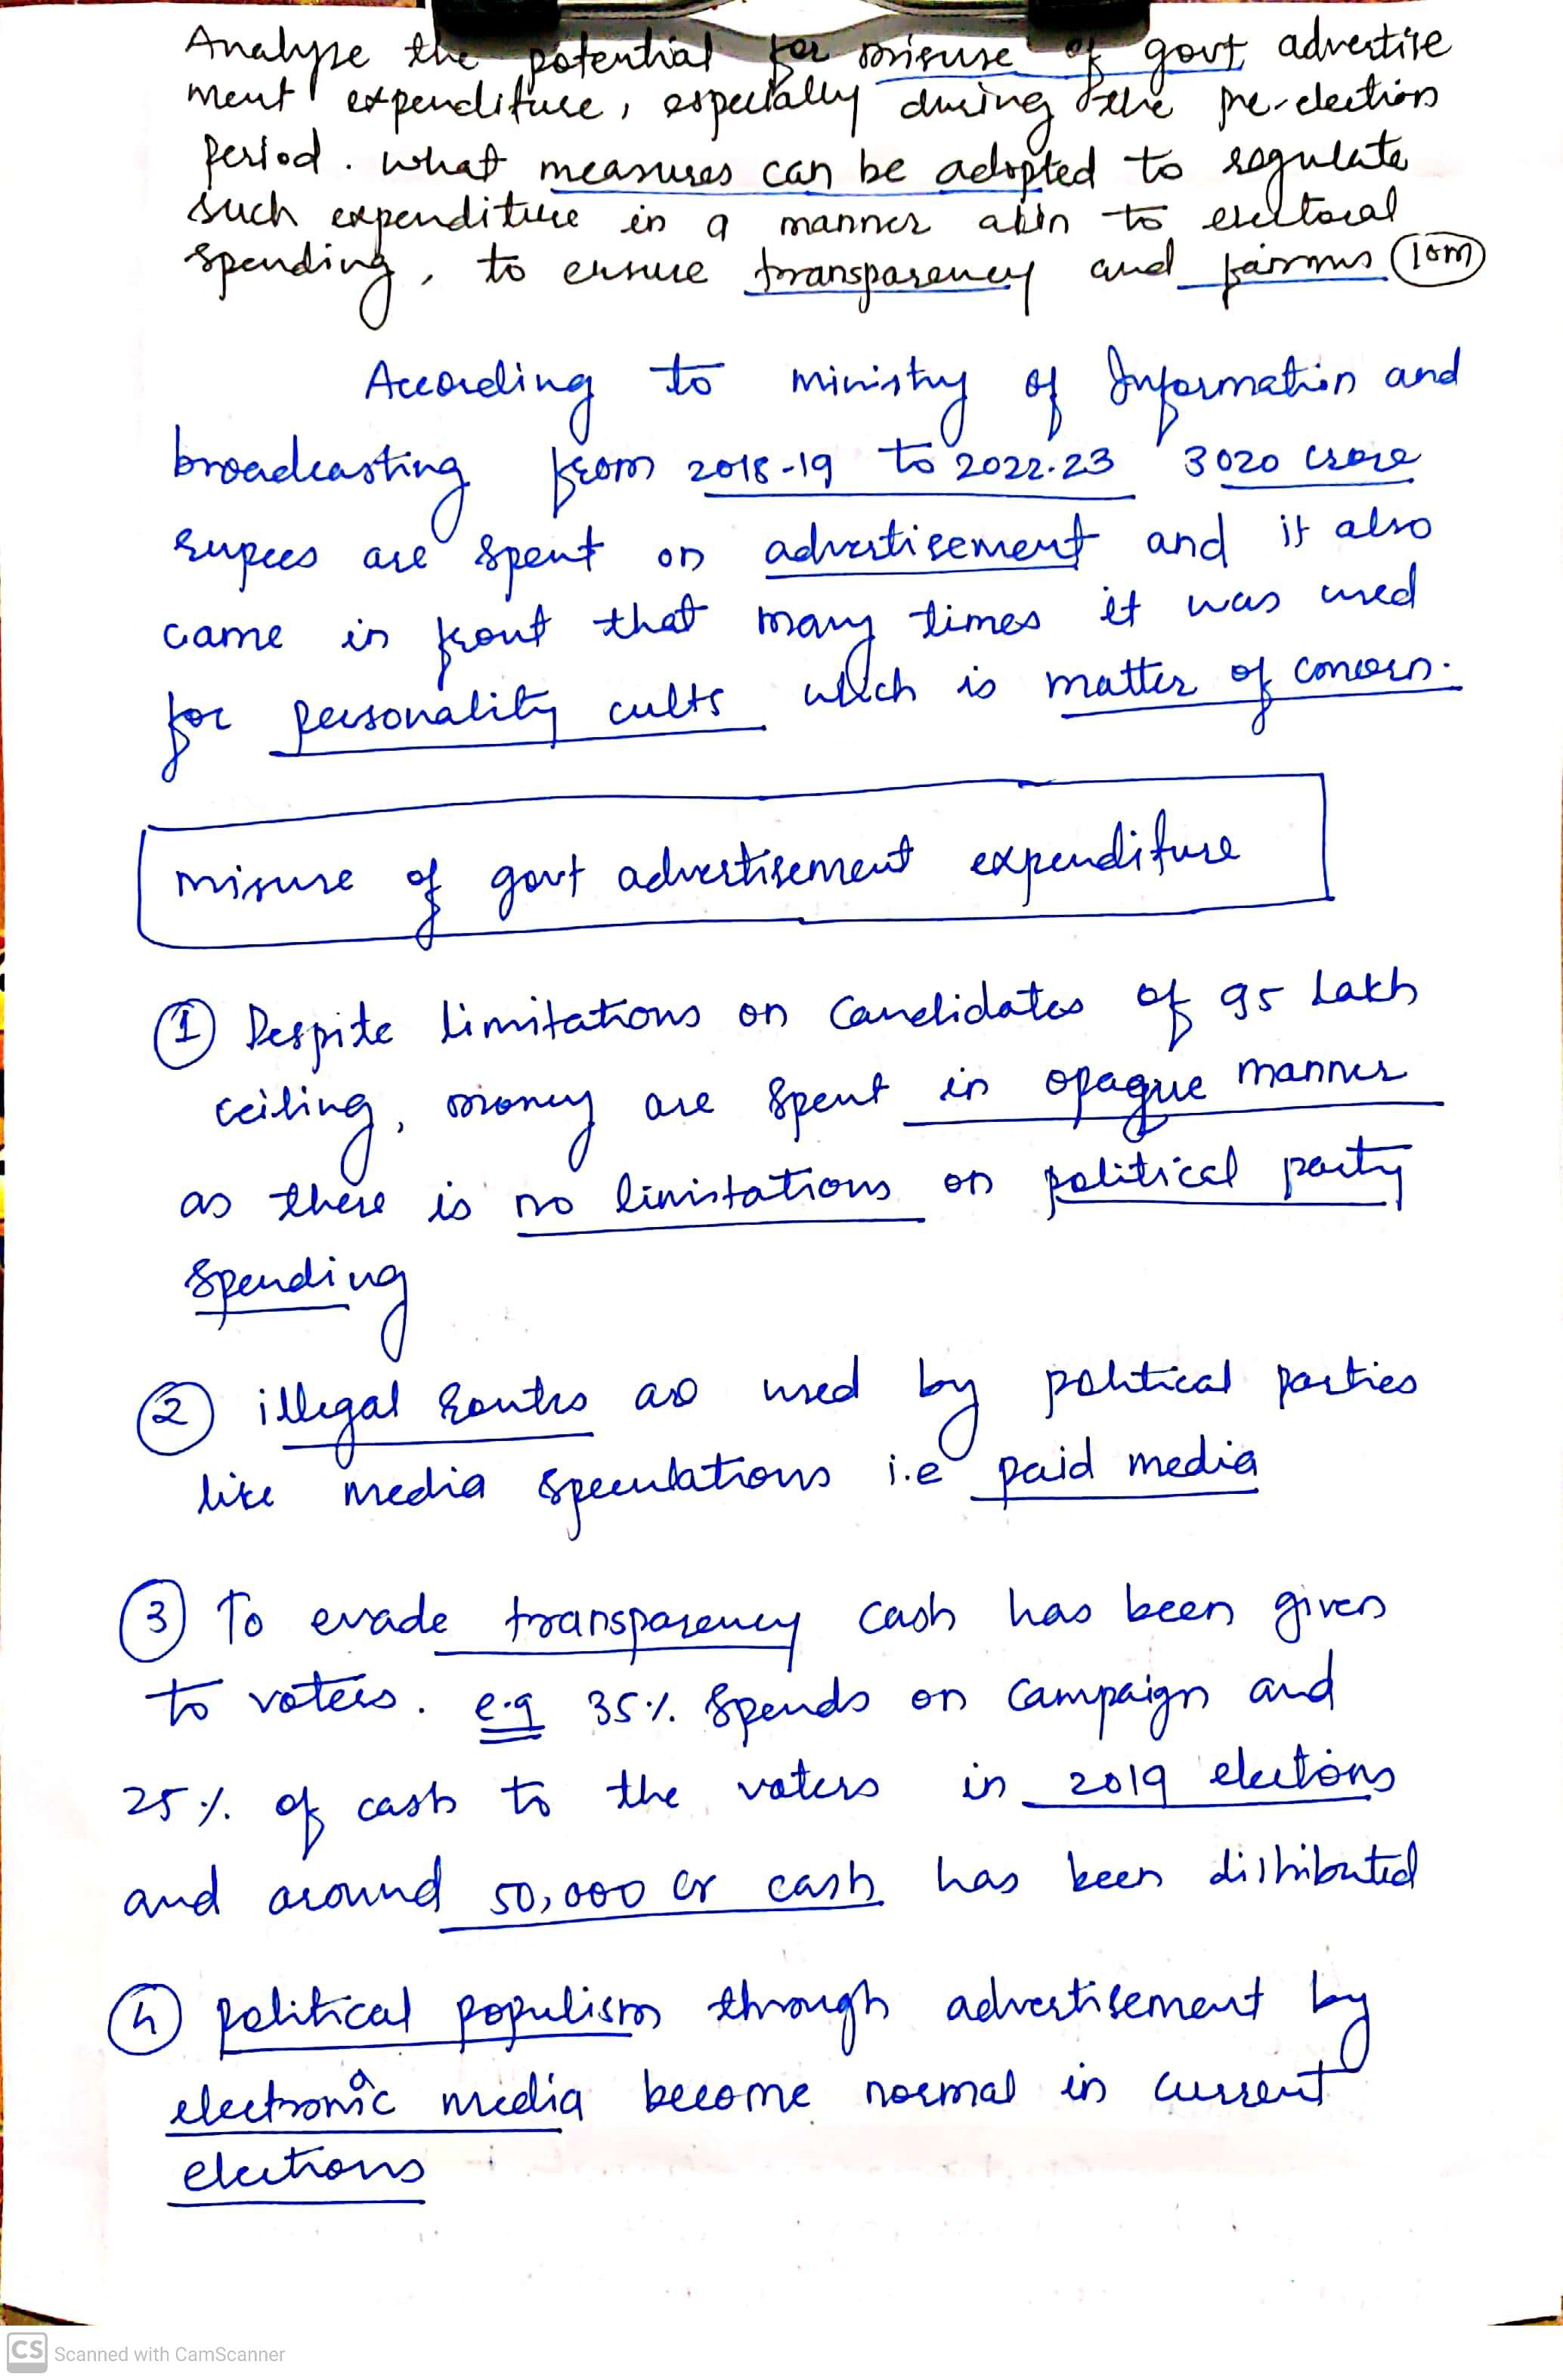 Analyse the potential for misuse of govt advertise
ment expenditure, especially during the pre-election
period. what measures can be adopted to regulate
such expenditure in a manner akin to electoral
spending, to ensure transparency and fairness 10m
According to ministry of Information and
broadcasting from 2018-19 to 2022-23 3020 crore
rupees are spent on advertisement and it also
came in front that many times it was used
for personality cults which is matter of concern.
misuse of govt advertisement expenditure
1 Despite limitations on candidates of 95 Lakh
ceiling, money are spent in opaque manner
as there is no limitations on political party
spending
2 illegal routes are used by political parties
like media speculations i.e paid media
3 To evade transparency cash has been given
to voters. e.g 35% spends on campaign and
25% of cash to the voters in 2019 elections
and around 50,000 cr cash has been distributed
4 political populism through advertisement by
electronic media become normal in current
elections
CS Scanned with CamScanner